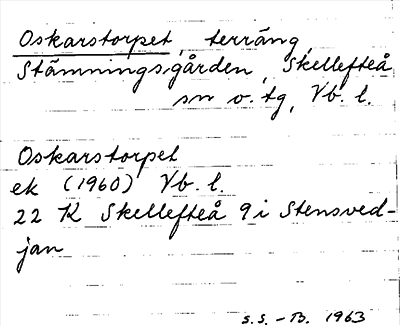 Oskarstorpet, terräng,
Stämningsgården, Skellefteå
sn o. tg, Vb. l.
Oskarstorpet
ek (1960) Vb. l.
22 K Skellefteå 9 i Stensved-
jan
S.S. - B. 1963